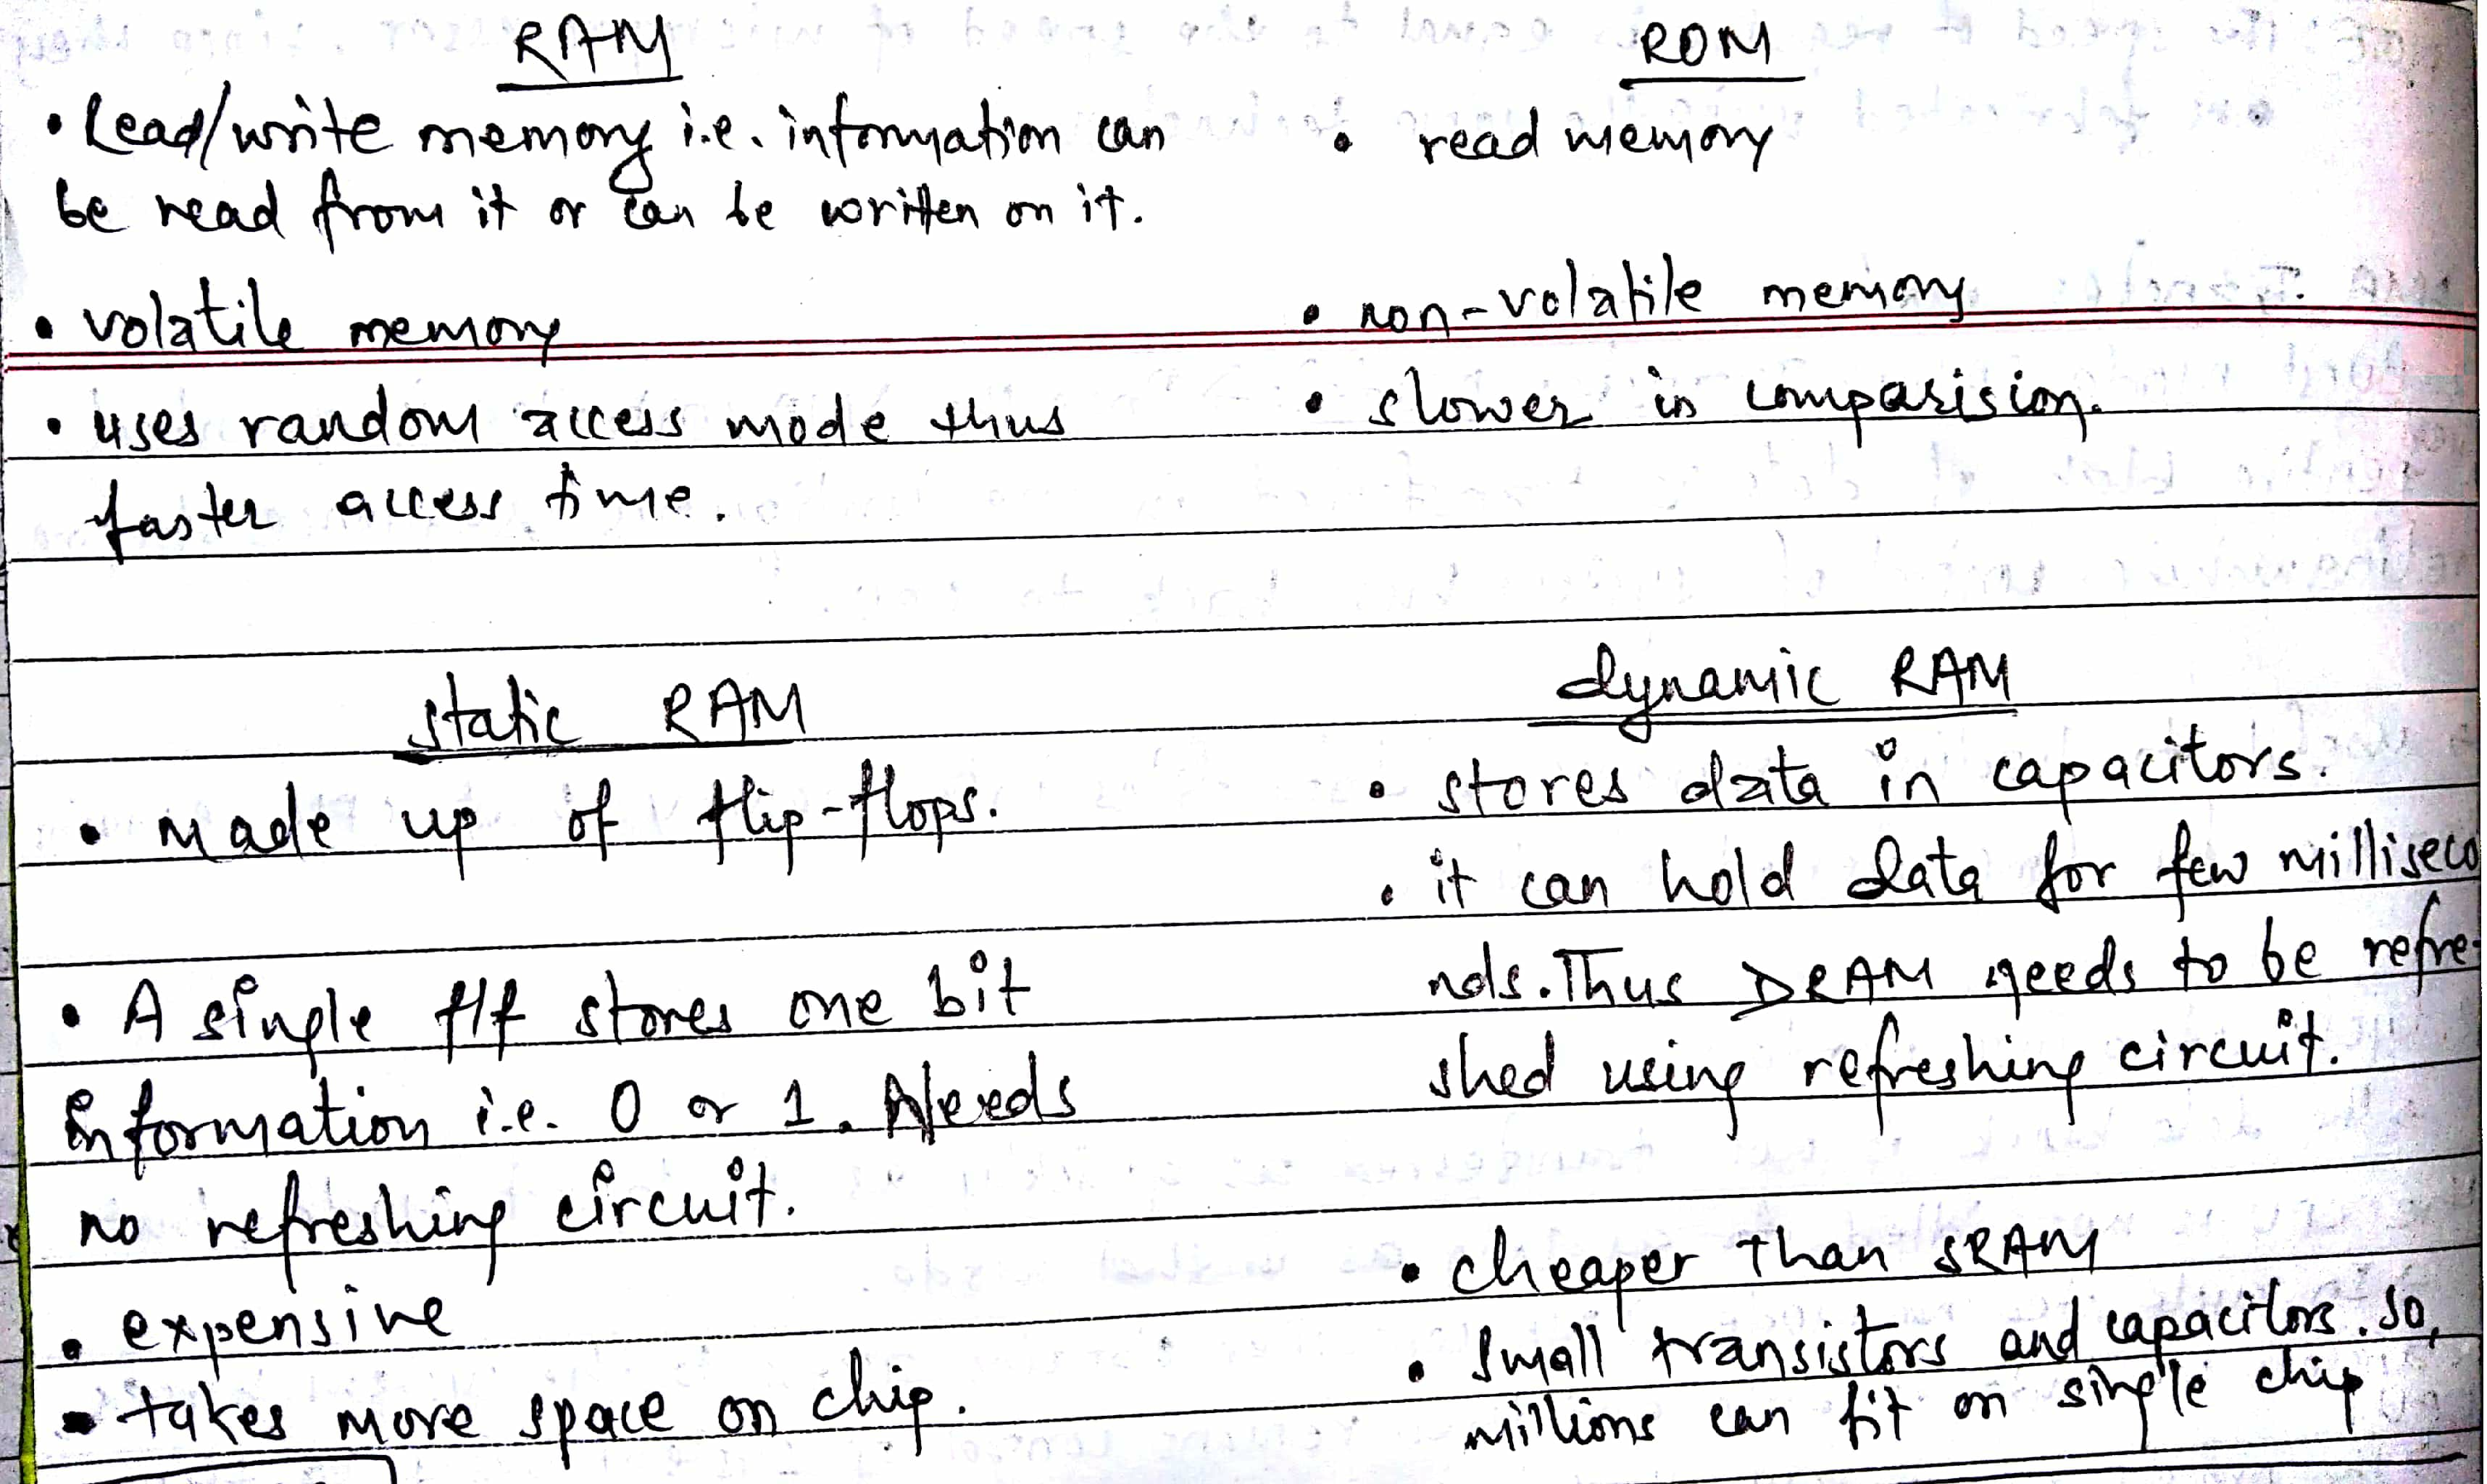 RAM
• Read/write memory i.e. information can
be read from it or can be written on it.
• volatile memory
• uses random access mode thus
faster access time.
ROM
• read memory
• non-volatile memory
• slower in comparision.
static RAM
• Made up of flip-flops.
• A single f/f stores one bit
information i.e. 0 or 1. Needs
no refreshing circuit.
• expensive
• takes more space on chip.
dynamic RAM
• stores data in capacitors.
• it can hold data for few milliseco
nds. Thus DRAM needs to be refre-
shed using refreshing circuit.
• cheaper than SRAM
• Small transistors and capacitors. So,
millions can fit on single chip